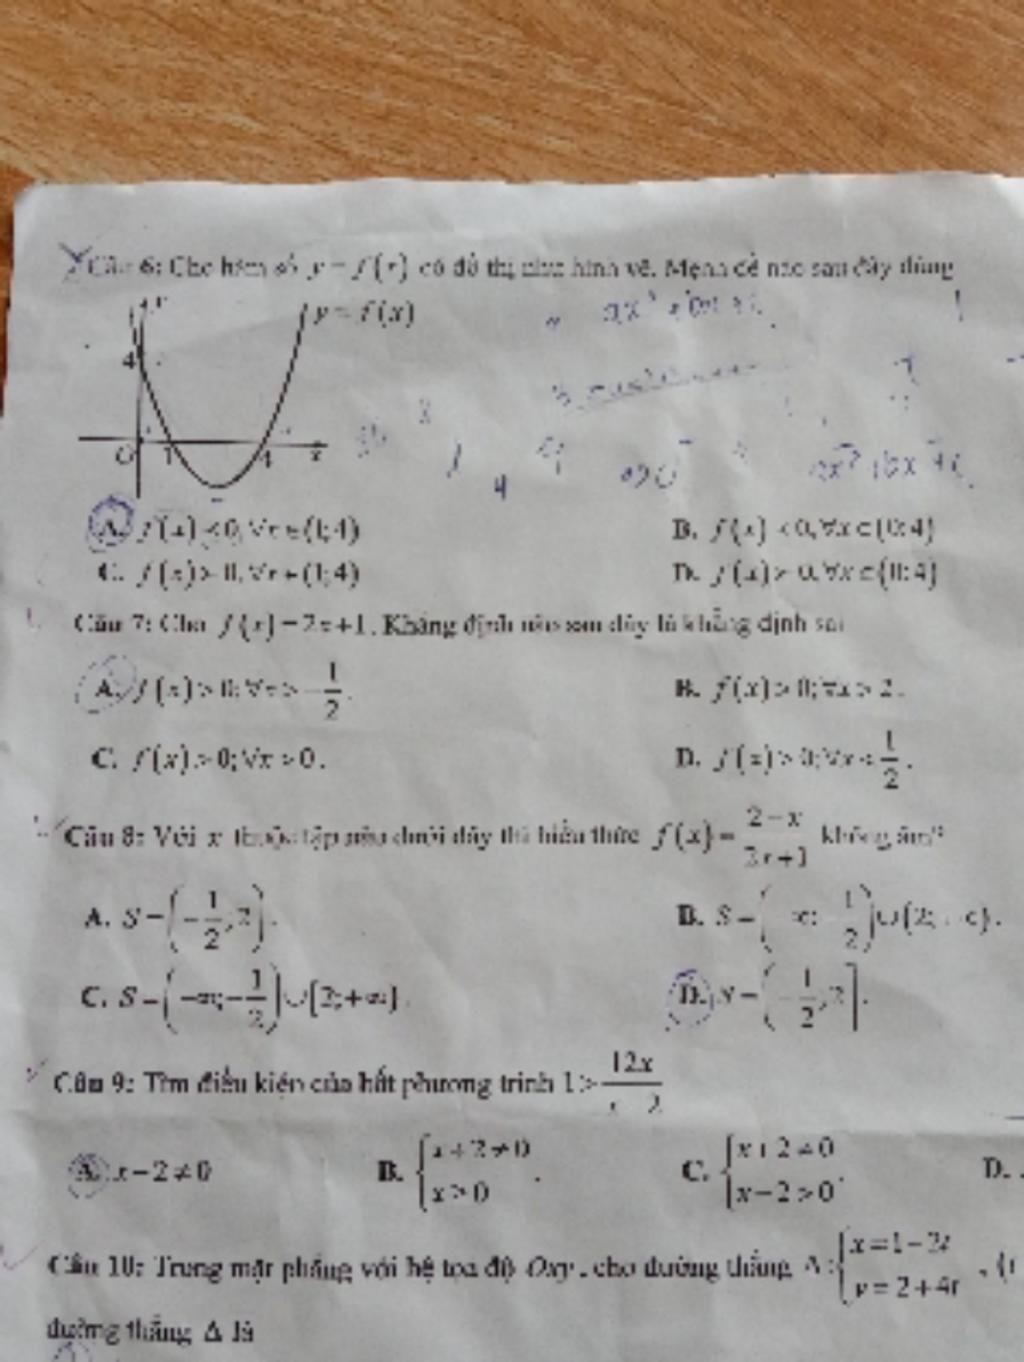 Câu 6: Cho hàm số y = f(x) có đồ thị như hình vẽ. Mệnh đề nào sau đây đúng
y = f(x)
4
O 1 4 x
ax² + bx + c
A. f(x) < 0, ∀x ∈ (1;4)
B. f(x) < 0, ∀x ∈ (0;4)
C. f(x) > 0, ∀x ∈ (1;4)
D. f(x) > 0, ∀x ∈ (0;4)
Câu 7: Cho f(x) = 2x + 1. Khẳng định nào sau đây là khẳng định sai
A. f(x) > 0; ∀x > -1/2.
B. f(x) > 0; ∀x > 2.
C. f(x) > 0; ∀x > 0.
D. f(x) > 0; ∀x < 1/2.
Câu 8: Với x thuộc tập nào dưới đây thì biểu thức f(x) = (2 - x)/(2x + 1) không âm?
A. S = (-1/2; 2).
B. S = (-∞; -1/2) ∪ (2; +∞).
C. S = (-∞; -1/2) ∪ [2; +∞).
D. S = (-1/2; 2].
Câu 9: Tìm điều kiện của bất phương trình 1 > 12x/(x - 2)
A. x - 2 ≠ 0
B. { x + 2 ≠ 0 ; x > 0 .
C. { x + 2 ≠ 0 ; x - 2 > 0 .
D.
Câu 10: Trong mặt phẳng với hệ tọa độ Oxy, cho đường thẳng Δ: { x = 1 - 2t ; y = 2 + 4t , (t
đường thẳng Δ là